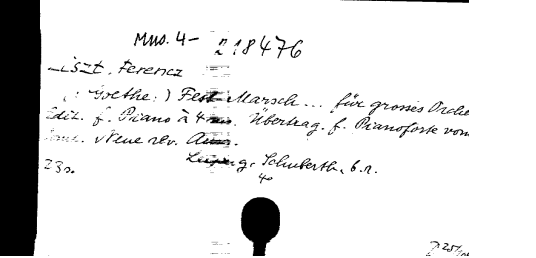 Mus. 4- 218476
Liszt, Ferencz
(: Goethe :) Fest Marsch ... für grosses Orche
Ediz. f. Piano à 4 ms. Übertrag. f. Pianoforte vom
Neue rev. Ausg.
Leipzig, Schuberth, b. r.
23 s. 4o